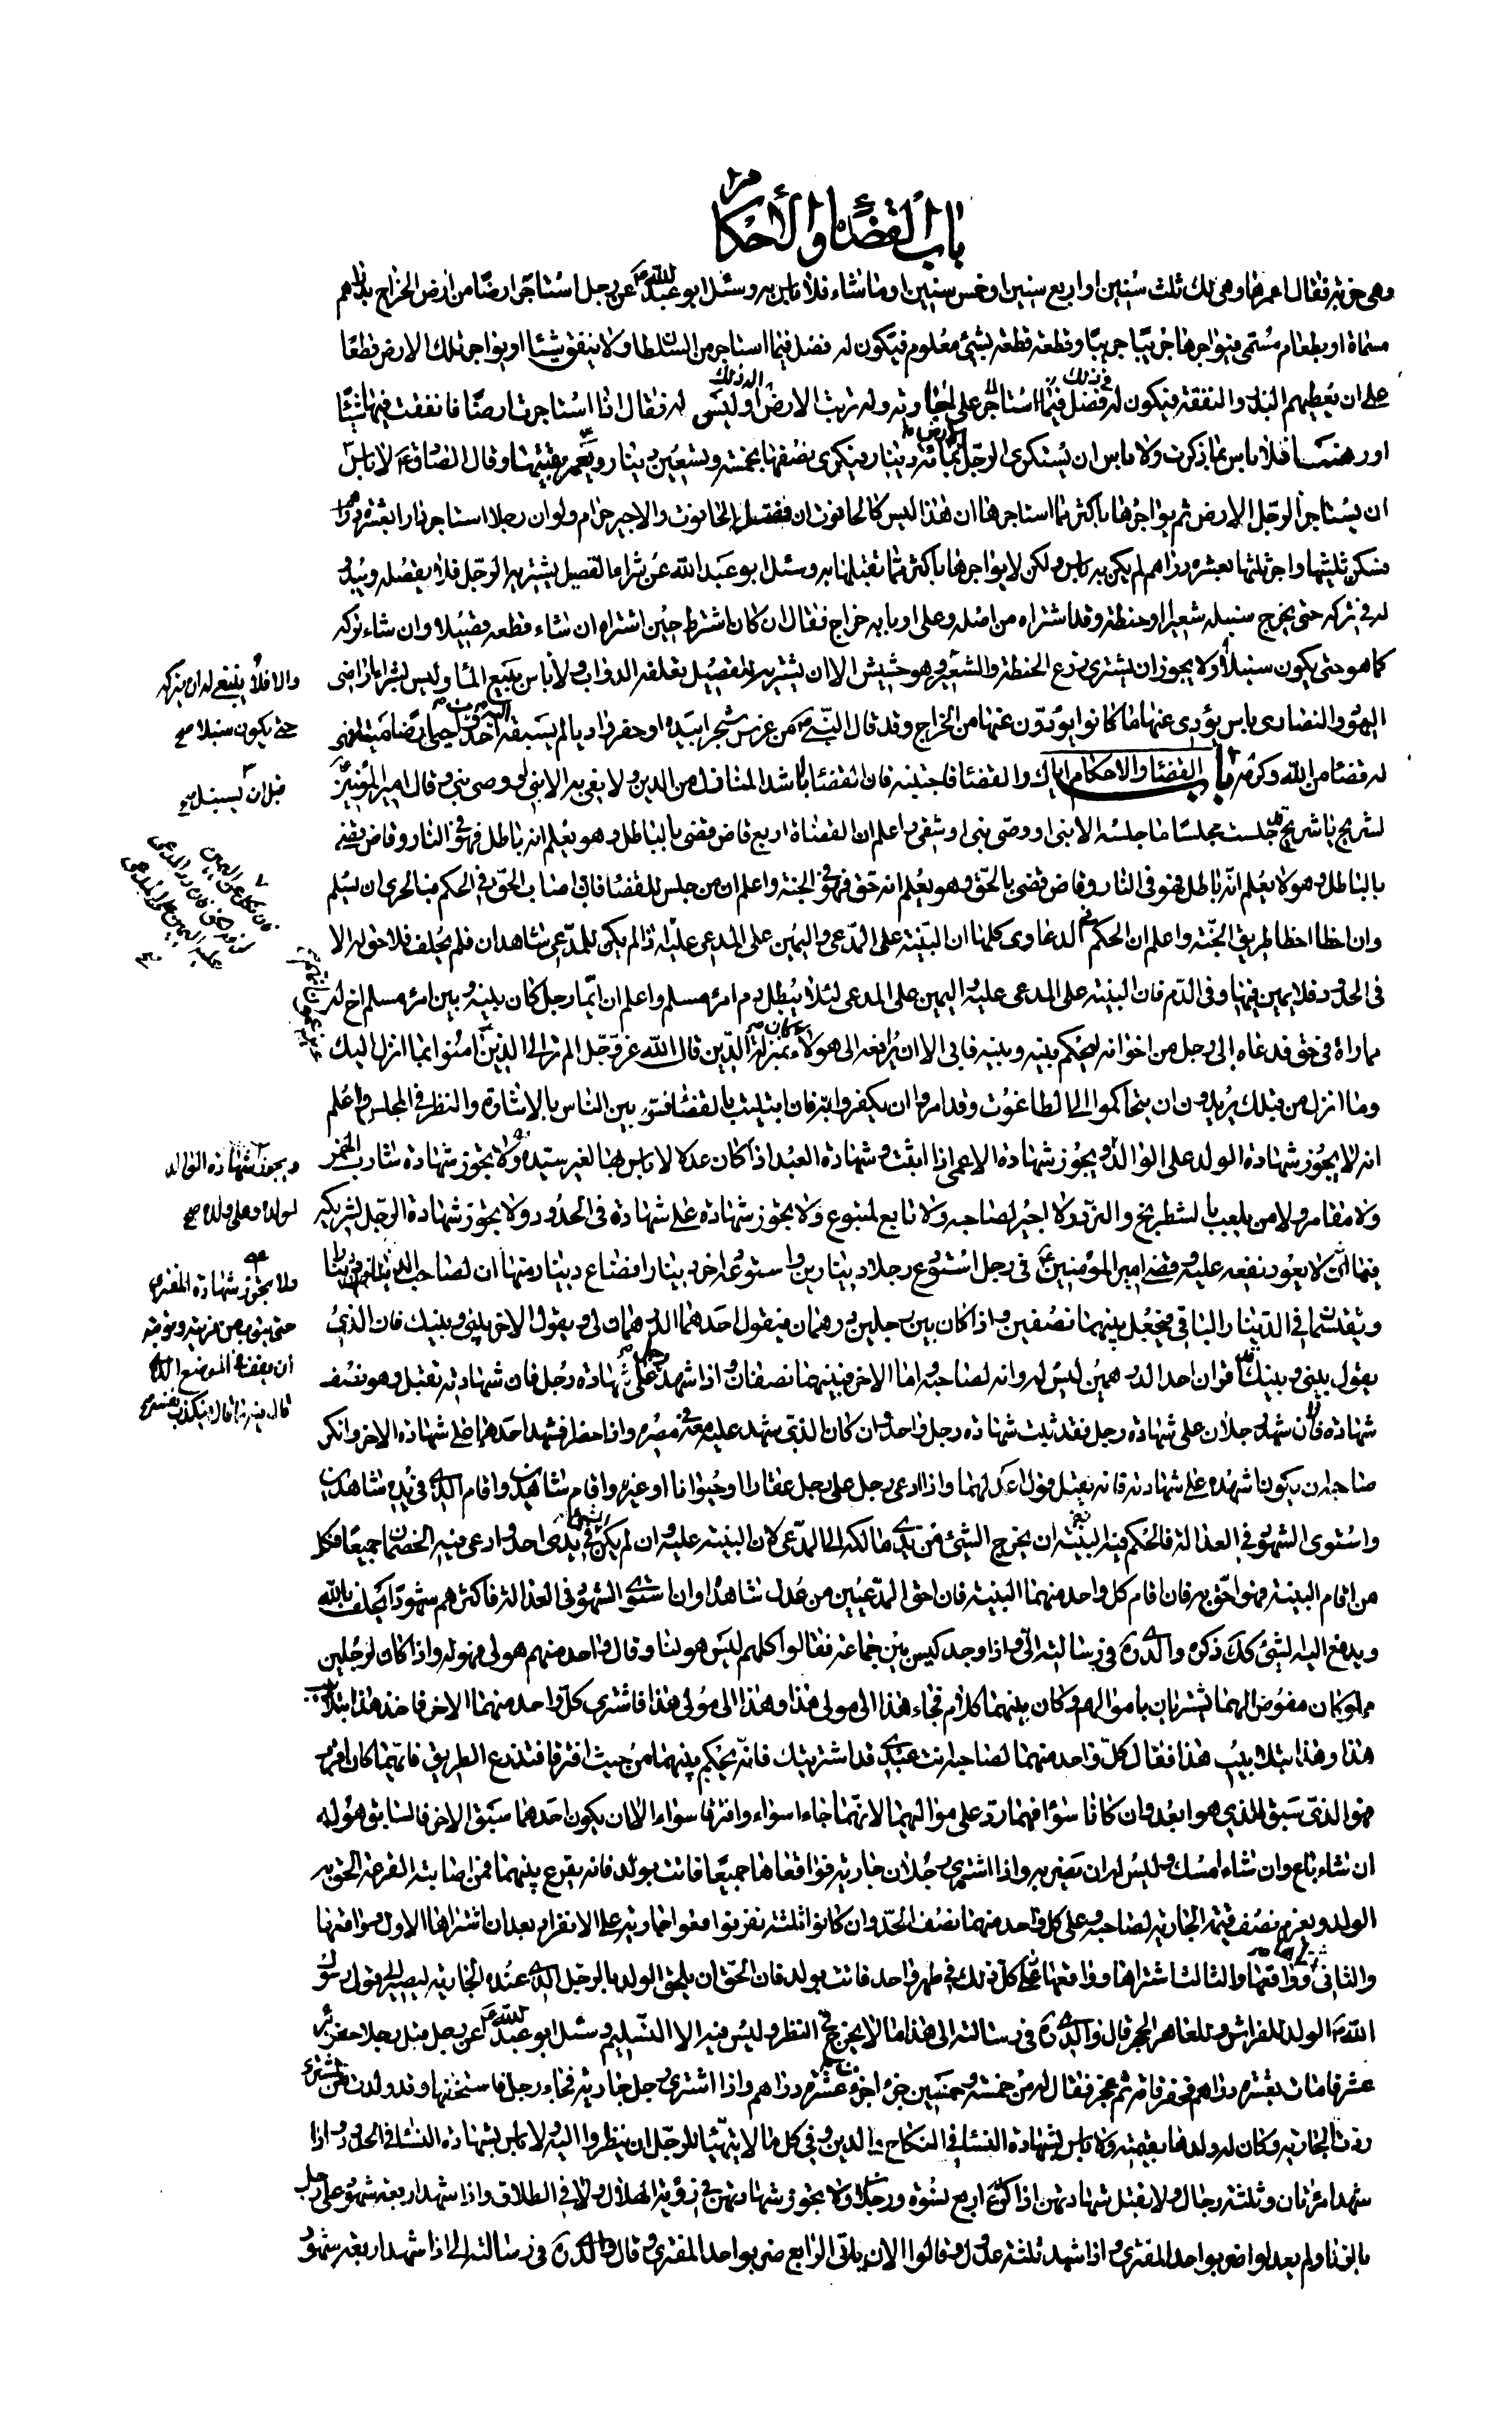 باب القضاء والأحكام
وهى خربه فقال اعمرها وهى لك ثلث سنين او اربع سنين او خمس سنين او ما شاء فلا باس به وسئل ابو عبد الله عن رجل استاجر ارضا من ارض الخراج بدراهم
مسماة او بطعام مسمى فيؤاجرها جريبا جريبا او قطعه قطعه بشئ معلوم فيكون له فضل فيما استاجر من السلطان ولا ينفق شيئا او يؤاجر تلك الارض قطعا
على ان يعطيهم البذر والنفقة فيكون له فى ذلك فضل على اجارته وله تربة الارض اوليس له فقال اذا استاجرت ارضا فانفقت فيها شيئا
او رممت فلا باس بما ذكرت ولا باس ان يستكرى الرجل الارض بمائة دينار فيكرى نصفها بخمسة وتسعين دينار ويعمر بقيتها وقال الصادق لا باس
ان يستاجر الرجل الارض ثم يؤاجرها باكثر مما استاجرها ان هذا ليس كالحانوت ان فضل الحانوت والاجير حرام ولو ان رجلا استاجر دارا بعشره دراهم
فسكن ثلثيها واجر ثلثها بعشره دراهم لم يكن به باس ولكن لا يؤاجرها باكثر مما تقبلها به وسئل ابو عبد الله عن شراء القصيل يشتريه الرجل فلا يقصله ويبدو
له فى تركه حتى يخرج سنبله شعيرا او حنطة وقد اشتراه من اصله وعلى اربابه خراج فقال ان كان اشترط حين اشتراه ان شاء قطعه قصيلا وان شاء تركه
كما هو حتى يكون سنبلا ولا يجوز ان يشترى زرع الحنطة والشعير وهو حشيش الا ان يشتريه للقصيل يعلفه الدواب ولا باس ببيع الماء وليس بشراء اراضى
اليهود والنصارى باس يؤدى عنها ما كانوا يؤدون عنها من الخراج وقد قال النبى من غرس شجرا بديه او حفر واديا لم يسبقه اليه احد او احيى ارضا ميتة فهى
له قضاء من الله وكرمه باب القضاء والاحكام اياك والقضاء فاجتنبه فان القضاء اشد المنازل من الدين ولا يفى به الا نبى او وصى نبى وقال امير المؤمنين
لشريح يا شريح قد جلست مجلسا ما جلسه الا نبى او وصى نبى او شقى واعلم ان القضاة اربع قاض قضى بالباطل وهو يعلم انه باطل فهو فى النار وقاض يقضى
بالباطل وهو لا يعلم انه باطل فهو فى النار وقاض قضى بالحق وهو يعلم انه حق فهو فى الجنة واعلم ان من جلس للقضاء فان اصاب الحق فى الحكم فبالحرى ان يسلم
وان اخطا اخطا طريق الجنة واعلم ان الحكم فى الدعاوى كلها ان البينة على المدعى واليمين على المدعى عليه اذا لم يكن للمدعى شاهدان فلم يحلف فلا حق له الا
فى الحدود فلا يمين فيها وفى الدم فان البينة على المدعى عليه واليمين على المدعى لئلا يبطل دم امرء مسلم واعلم ان ايما رجل كان بينه وبين امرء مسلم اخ له
مماراة فى حق فدعاه الى رجل من اخوانه ليحكم بينه وبينه فابى الا ان يرافعه الى هؤلاء كان بمنزلة الذين قال الله عز وجل الم تر الى الذين امنوا بما انزل اليك
وما انزل من قبلك يريدون ان يتحاكموا الى الطاغوت وقد امروا ان يكفروا به فان ابتليت بالقضاء فسو بين الناس بالاشارة والنظر فى المجلس واعلم
انه لا يجوز شهادة الولد على الوالد ويجوز شهادة الاعمى اذا اثبت وشهادة العبد اذا كان عدلا لا باس بها لغير سيده ولا يجوز شهادة شارب الخمر
ولا مقامر ولا من يلعب بالشطرنج والنرد ولا اجير لصاحبه ولا تابع لمتبوع ولا يجوز شهادة على شهادة فى الحدود ولا يجوز شهادة الرجل لشريكه
فيما يعود نفعه عليه وقضى امير المؤمنين فى رجل استودع رجلا دينارين واستودعه اخر دينارا فضاع دينار منها ان لصاحب الدينارين دينارا
ويقتسمان الدينار الباقى فيجعل بينهما نصفين واذا كان بين رجلين درهمان فيقول احدهما الدرهمان لى ويقول الاخر بينى وبينك فان الذى
يقول بينى وبينك قد اقر ان احد الدرهمين ليس له وانه لصاحبه واما الاخر فبينهما نصفان واذا شهد رجل على شهادة رجل فان شهادته تقبل وهو نصف
شهادة فان شهد رجلان على شهادة رجل فقد ثبت شهادة رجل واحد وان كان الذى شهد عليه معه فى مصره واذا حضرا فشهد احدهما على شهادة الاخر وانكر
صاحبه ان يكون اشهده على شهادته فانه يقبل قول اعدلهما واذا ادعى رجل على رجل عقارا او حيوانا او غيره واقام شاهدين واقام الذى فى يده شاهدين
واستوى الشهود فى العدالة فالحكم فيه البينة ان يخرج الشئ من يدى مالكه الى المدعى لان البينة عليه وان لم يكن الشئ فى يدى احد وادعى فيه الخصمان جميعا فكل
من اقام البينة فهو احق به فان اقام كل واحد منهما البينة فان احق المدعيين من عدل شاهداه وان استوى الشهود فى العدالة فاكثرهم شهودا يحلف بالله
ويدفع اليه الشئ كك ذكره والدى فى رسالته الى واذا وجد كيس بين جماعة فقالوا كلهم ليس هو لنا وقال واحد منهم هو لى فهو له واذا كان لرجلين
مملوكان مفوض اليهما يشتريان باموالهم وكان بينهما كلام فجاء هذا الى مولى هذا وهذا الى مولى هذا فاشترى كل واحد منهما الاخر فاخذ هذا بتلابيب
هذا وهذا بتلابيب هذا فقال كل واحد منهما لصاحبه انت عبدى قد اشتريتك فانه يحكم بينهما من حيث افترقا فتذرع الطريق فايهما كان اقرب
فهو الذى سبق الذى هو ابعد وان كانا سواء فهما رد على مواليهما لانهما جاءا سواء وافترقا سواء الا ان يكون احدهما سبق الاخر فالسابق هو له
ان شاء باع وان شاء امسك وليس له ان يضر به واذا اشترى رجلان جارية فواقعاها جميعا فاتت بولد فانه يقرع بينهما فمن اصابته القرعة الحق به
الولد ويغرم نصف قيمة الجارية لصاحبه وعلى كل واحد منهما نصف الحد وان كانوا ثلثة نفر فواقعوا جارية على الانفراد بعد ان اشتراها الاول وواقعها
والثانى اشتراها وواقعها والثالث اشتراها وواقعها كل ذلك فى طهر واحد فاتت بولد فان الحق ان يلحق الولد بالرجل الذى عنده الجارية ليصير الى قول رسول
الله الولد للفراش وللعاهر الحجر قال والدى ره فى رسالته الى هذا ما لا يخرج فى النظر وليس فيه الا التسليم وسئل ابو عبد الله عن رجل قبل رجلا حفر بئر
عشر قامات بعشره دراهم فحفر قامة ثم عجز فقال له من خمسة وخمسين جزء اجزء من عشره دراهم واذا اشترى رجل جارية فجاء رجل فاستحقها وقد ولدت من المشترى
ردت الجارية وكان له ولدها بقيمته ولا باس بشهادة النساء فى النكاح والدين وفى كل ما لا يتهيا للرجل ان ينظروا اليه ولا باس بشهادة النساء فى الحدود اذا
شهد امرئتان وثلثة رجال ولا يقبل شهادتهن اذا كن اربع نسوة ورجلان ولا يجوز شهادتهن فى رؤية الهلال ولا فى الطلاق واذا شهد اربعة شهود على رجل
بالزنا ولم يعدلوا ضربوا حد المفترى واذا شهد ثلثة عدول وقالوا الان ياتى الرابع ضربوا حد المفترى وقال والدى ره فى رسالته الى اذا شهد اربعة شهود
والا فلا ينبغى له ان يتركه
حتى يكون سنبلا صح
قبل ان يسنبل صح
ويجوز شهادة الوالد
لولده وعلى ولده صح
ولا يجوز شهادة المفترى
حتى يتوب من فريته وتوبته
ان يقف فى الموضع الذى
قال فيه ما قال فيكذب نفسه صح